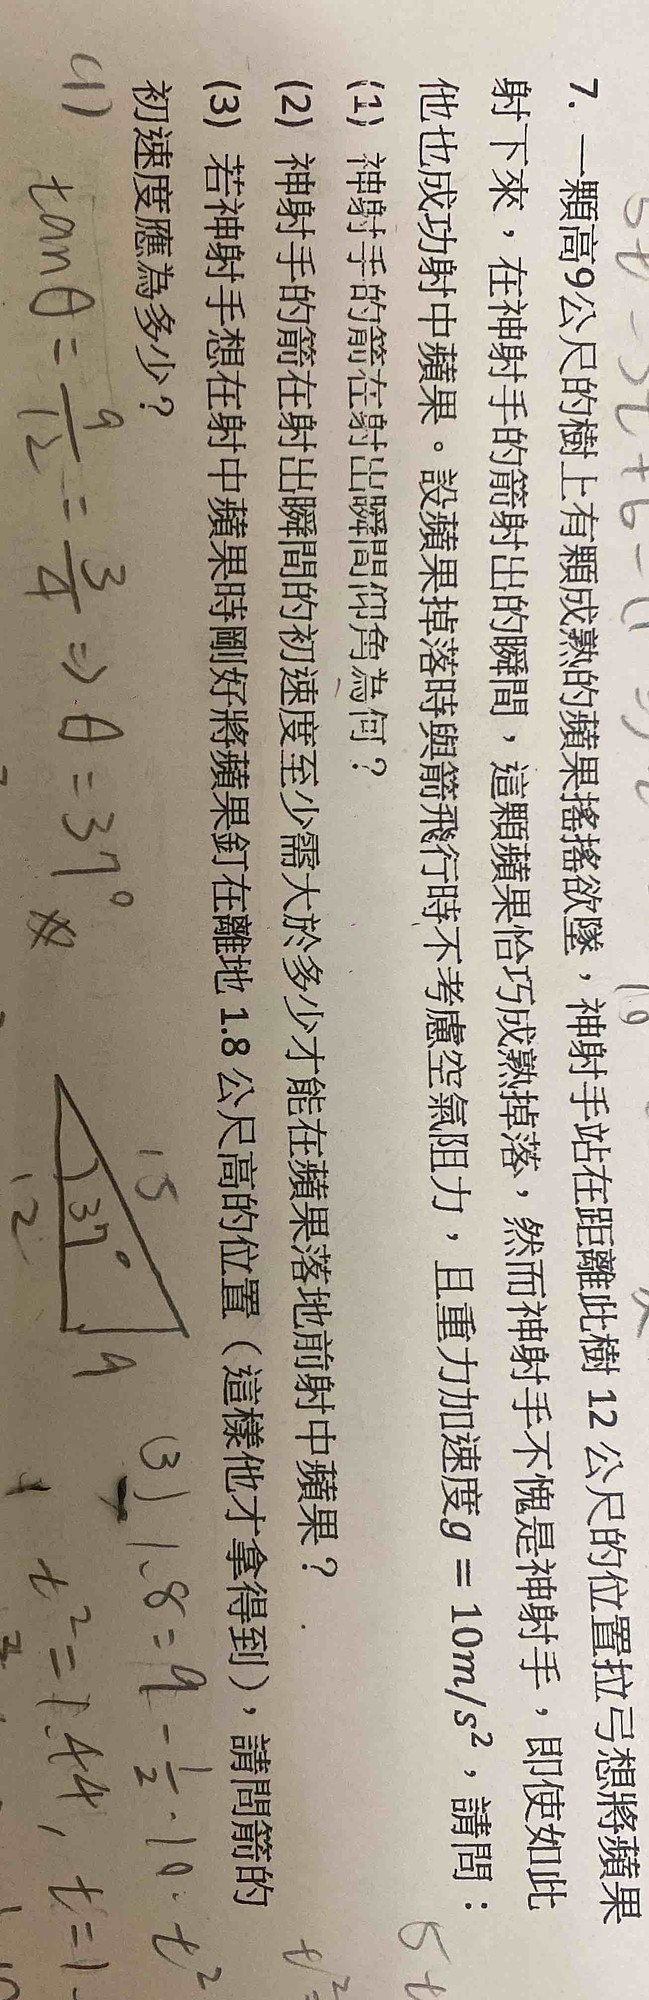 7. 一顆高9公尺的樹上有顆成熟的蘋果搖搖欲墜，神射手站在距離此樹 12 公尺的位置拉弓想將蘋果
射下來，在神射手的箭射出的瞬間，這顆蘋果恰巧成熟掉落，然而神射手不愧是神射手，即使如此
他也成功射中蘋果。設蘋果掉落時與箭飛行時不考慮空氣阻力，且重力加速度g = 10m/s²，請問：
(1) 神射手的箭在射出瞬間仰角為何？
(2) 神射手的箭在射出瞬間的初速度至少需大於多少才能在蘋果落地前射中蘋果？
(3) 若神射手想在射中蘋果時剛好將蘋果釘在離地 1.8 公尺高的位置（這樣他才拿得到），請問箭的
初速度應為多少？
(1) tanθ = 9/12 = 3/4 ⇒ θ = 37°
15
37°
9
12
(3) 1.8 = 9 - 1/2 · 10 · t²
t² = 1.44, t = 1.